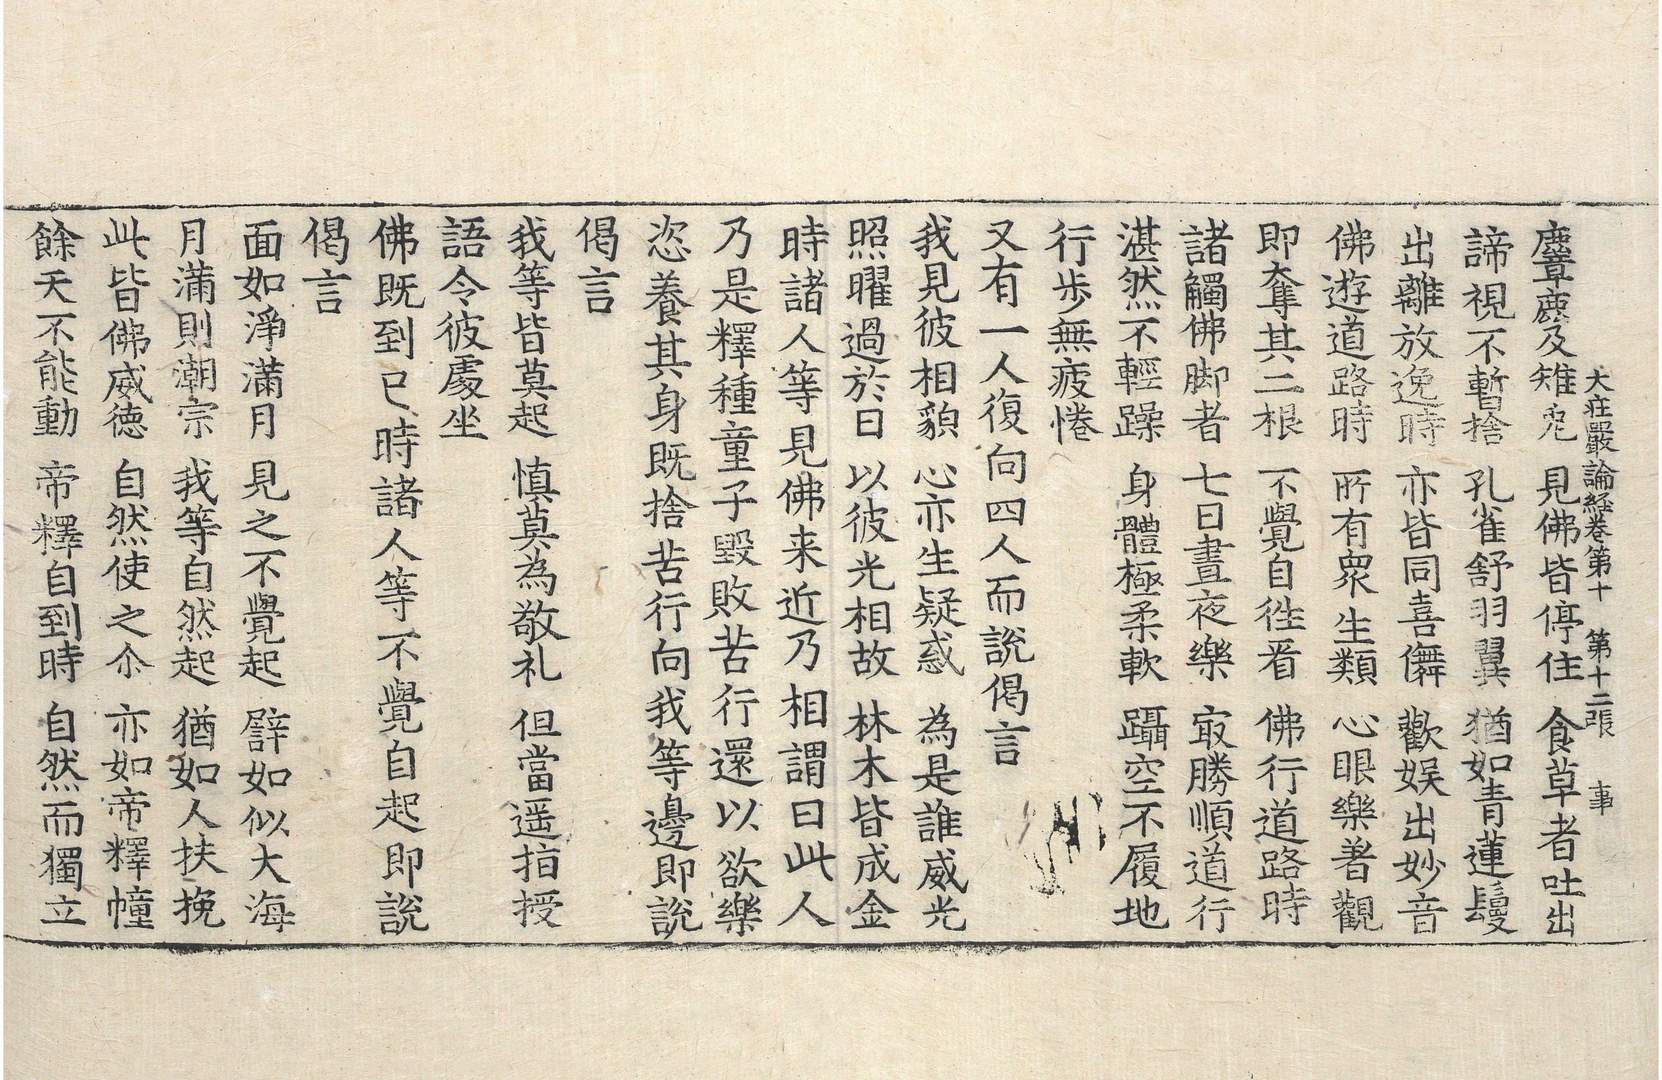 大莊嚴論經卷第十 第十二張 事
麞鹿及雉兔 見佛皆停住 食草者吐出
諦視不暫捨 孔雀舒羽翼 猶如青蓮鬘
出離放逸時 亦皆同喜儛 歡娛出妙音
佛遊道路時 所有衆生類 心眼樂著觀
即奪其二根 不覺自往看 佛行道路時
諸觸佛脚者 七日晝夜樂 㝡勝順道行
湛然不輕躁 身體極柔軟 躡空不履地
行步無疲惓
又有一人復向四人而說偈言
我見彼相貌 心亦生疑惑 為是誰威光
照曜過於日 以彼光相故 林木皆成金
時諸人等見佛来近乃相謂曰此人
乃是釋種童子毀敗苦行還以欲樂
恣養其身既捨苦行向我等邊即說
偈言
我等皆莫起 慎莫為敬礼 但當遥指授
語令彼處坐
佛既到已時諸人等不覺自起即說
偈言
面如淨滿月 見之不覺起 譬如似大海
月滿則潮宗 我等自然起 猶如人扶挽
此皆佛威德 自然使之尒 亦如帝釋幢
餘天不能動 帝釋自到時 自然而獨立